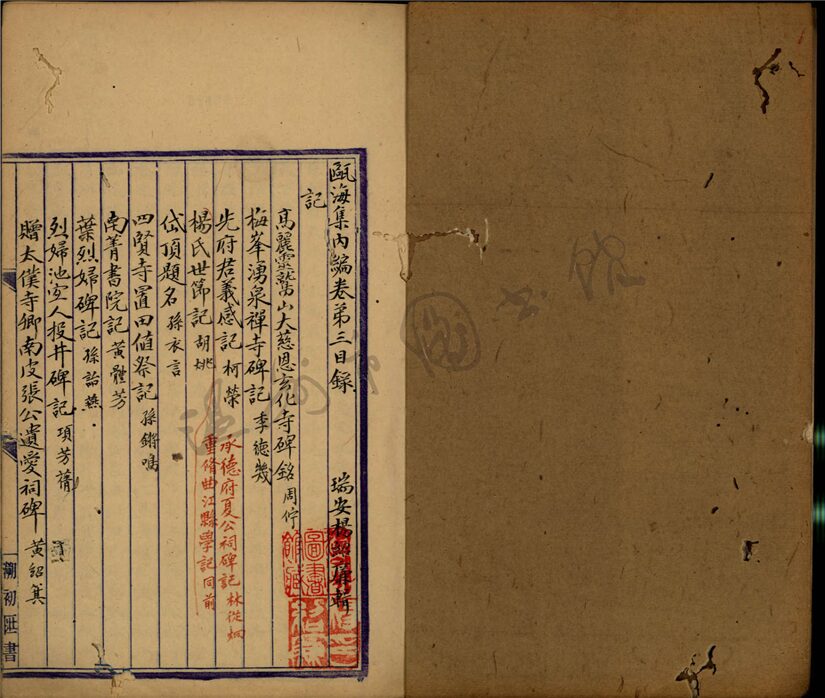 甌海集內編卷第三目錄
瑞安楊紹廉輯
記
高麗靈鷲山大慈恩玄化寺碑銘 周佇
梅峯湧泉禪寺碑記 李德幾
先府君義感記 柯榮
承德府夏公祠碑記 林從炯
楊氏世節記 胡姚
重脩曲江縣學記 同前
岱頂題名 孫衣言
四賢寺置田值祭記 孫鏘鳴
南菁書院記 黃體芳
葉烈婦碑記 孫詒燕
烈婦池宜人投井碑記 項芳蒨
贈太僕寺卿南皮張公遺愛祠碑 黃紹箕
圖書館藏
瀏初匪書